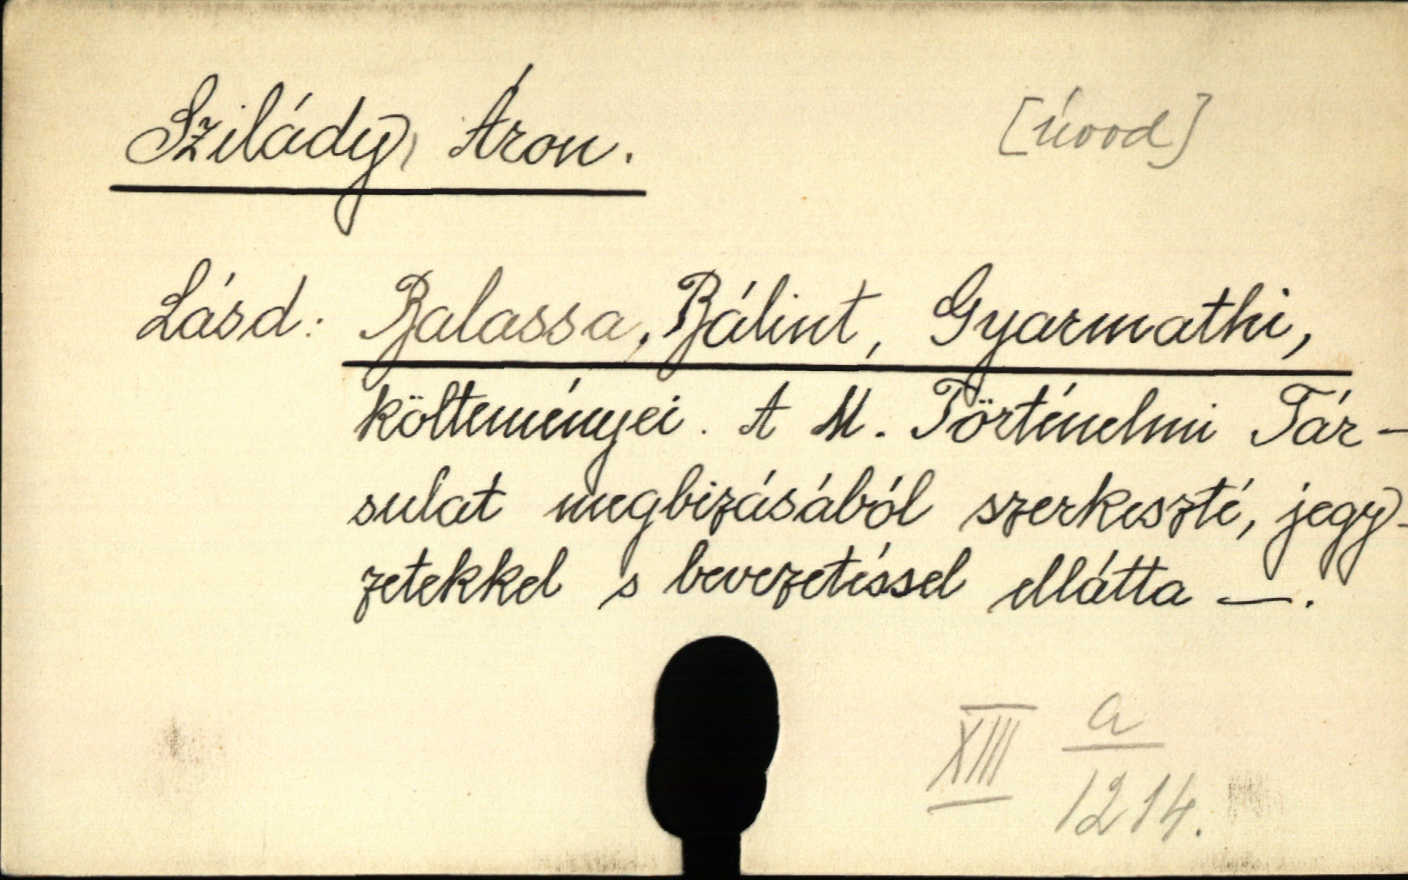 Szilády, Áron. [úvod]
Lásd: Balassa, Bálint, Gyarmathi,
költeményei. A M. Történelmi Tár-
sulat megbizásából szerkeszté, jegy-
zetekkel s bevezetéssel ellátta —.
XIII a
1214.